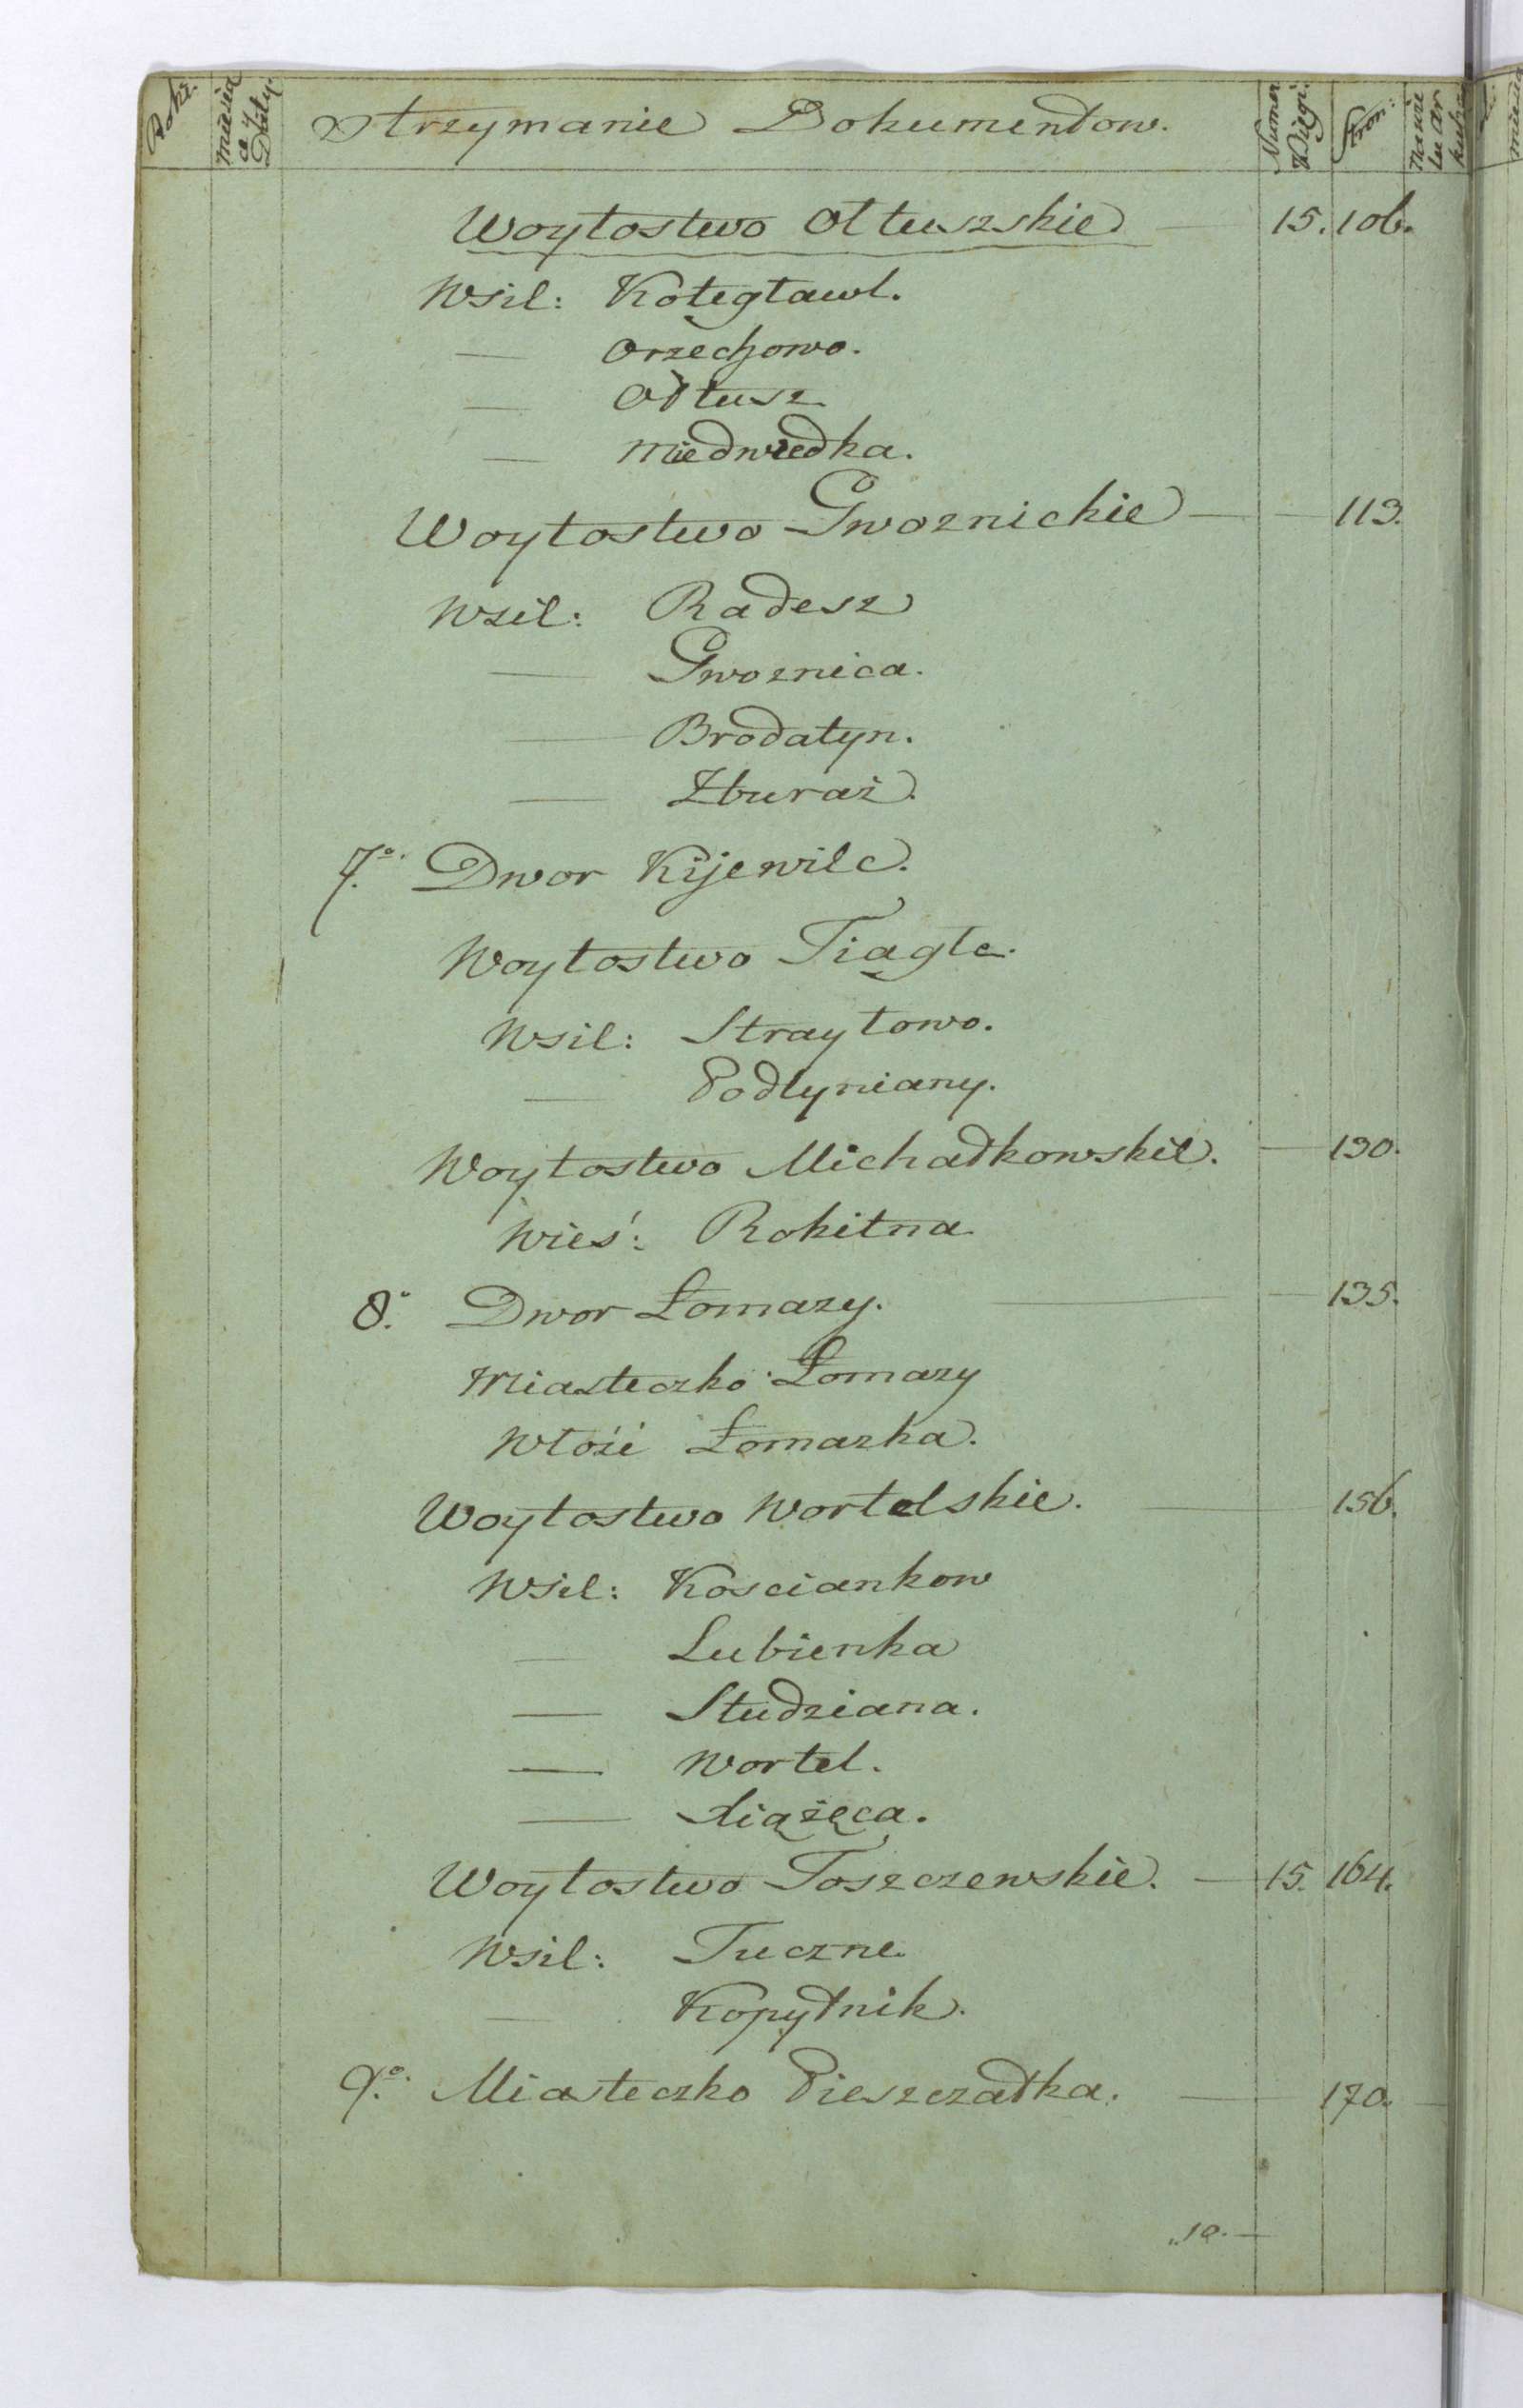 Roki.
miesiąca y Daty.
Otrzymanie Dokumentow.
Numer Xiegi.
Stron:
Woytostwo Ottuszskie 15. 106.
Wsie: Kotegtawe.
— Orzechowo.
— Ottusz
— Miedwiedka.
Woytostwo Gwoznickie — 113.
Wsie: Radesz
— Gwoznica.
— Brodatyn.
— Zburaż.
7°. Dwor Kijewiec.
Woytostwo Tiagte.
Wsie: Straytowo.
— Podtyniany.
Woytostwo Michatkowskie. — 130.
Wieś: Rokitna
8° Dwor Łomazy. — 135.
Miasteczko Łomazy
Włość Łomazka.
Woytostwo Wortelskie. — 156.
Wsie: Kosciankow
— Lubienka
— Studziana.
— Wortel.
— Xiążęca.
Woytostwo Toszczewskie. — 15. 164.
Wsie: Tuczne
— Kopytnik.
9°. Miasteczko Pieszczatka. — 170.
„10. —